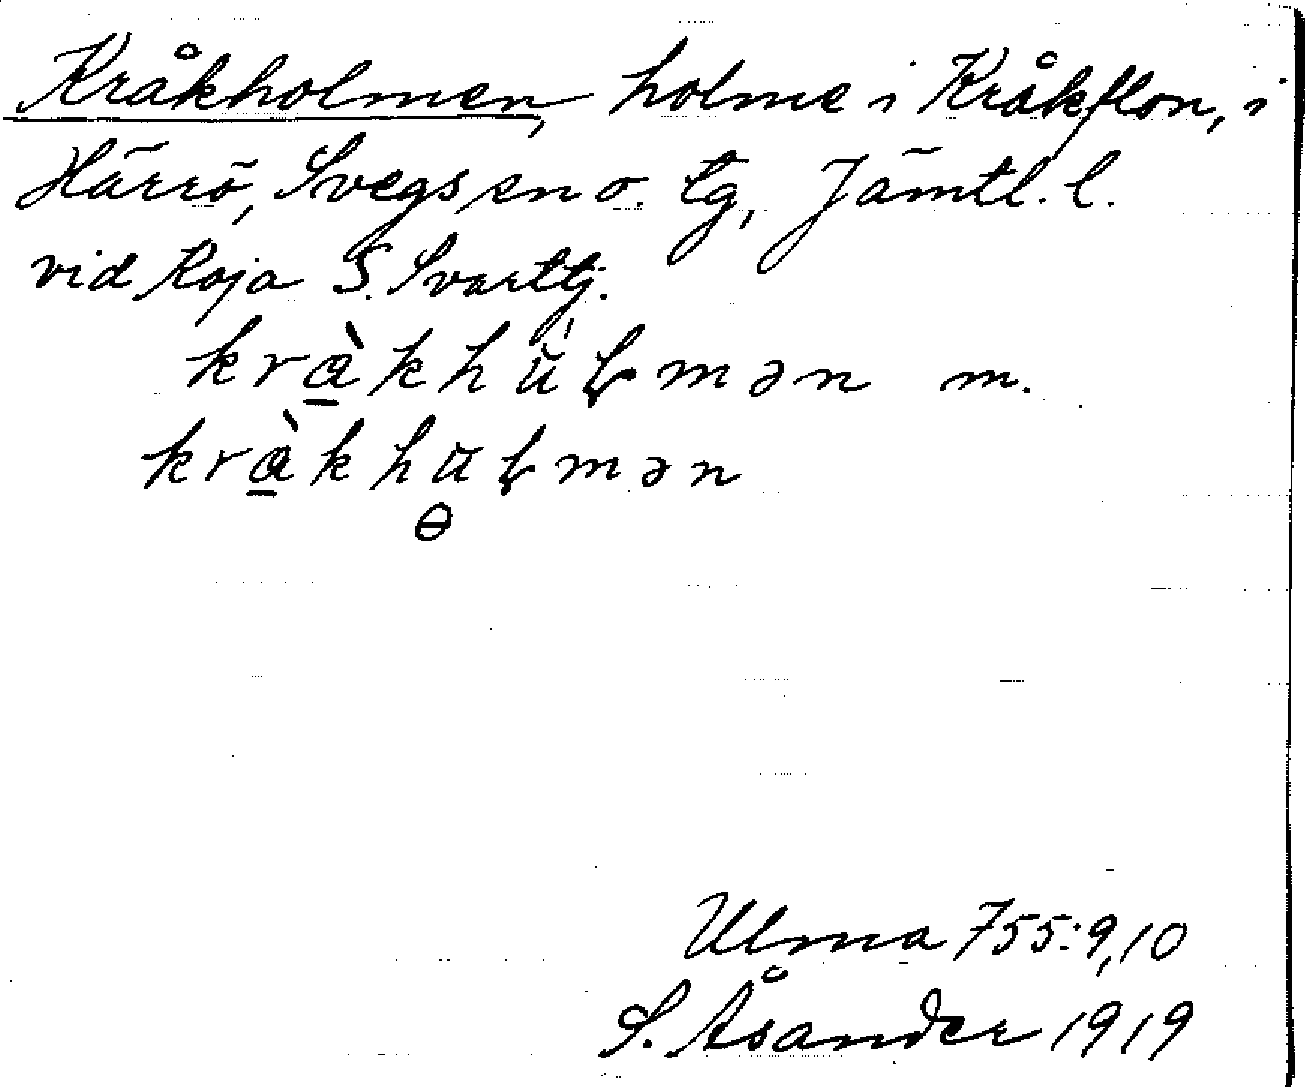 Kråkholmen, holme i Kråkflon, i
Härrö, Svegs sn o. tg, Jämtl. l.
vid Roja S. Svarttj.
krὰ̱khu̇̀ɽmən m.
krὰ̱khuɽmən
ɵ
Ulma 755:9,10
S. Åsander 1919